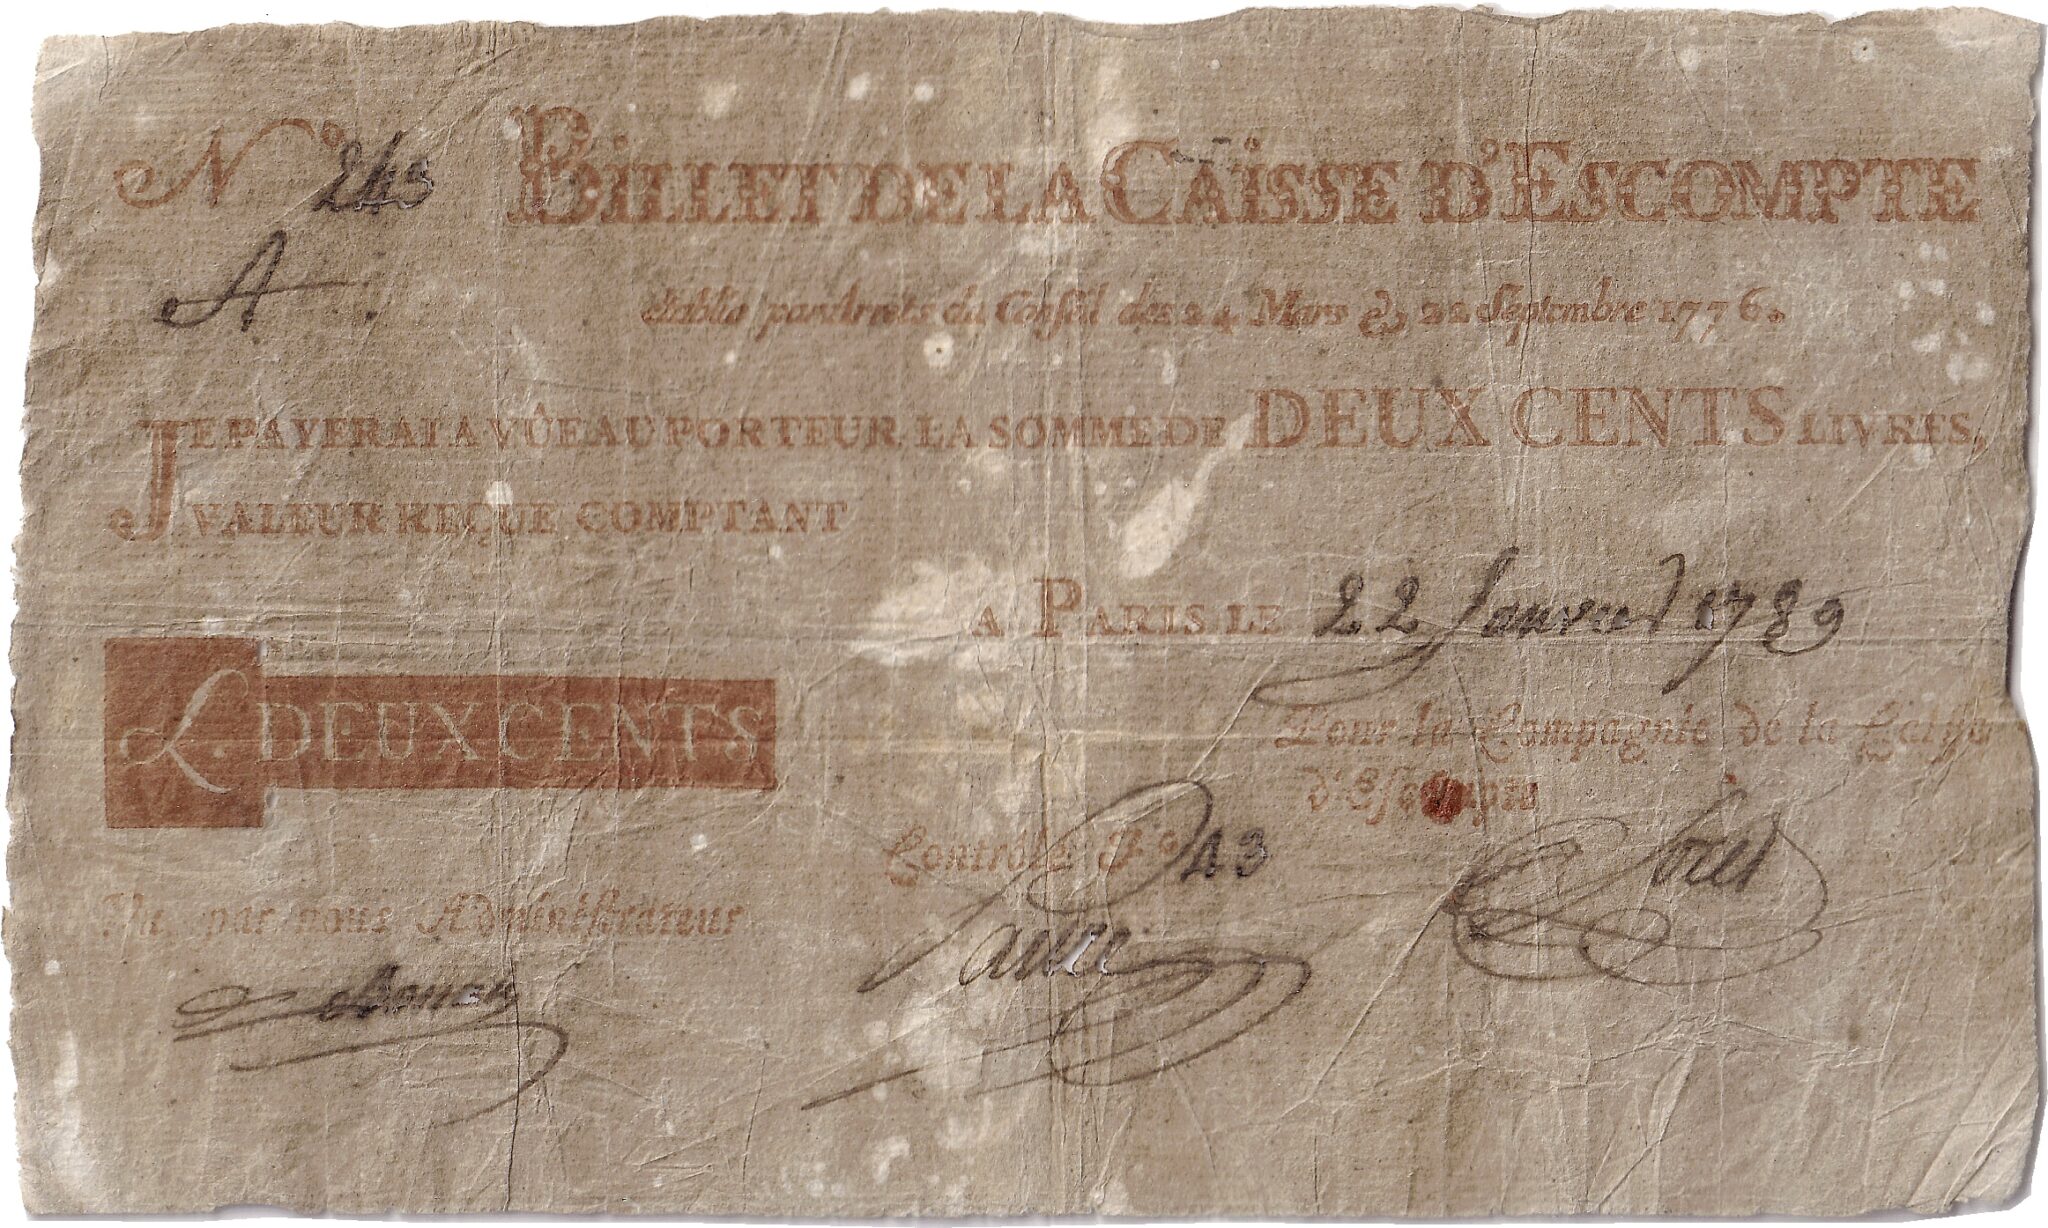 N° 243 BILLET DE LA CAISSE D'ESCOMPTE
A
établie par Arrêts du Conseil des 24 Mars & 22 Septembre 1776.
JE PAYERAI A VÛE AU PORTEUR LA SOMME DE DEUX CENTS LIVRES,
VALEUR REÇUE COMPTANT
A PARIS LE 22 Janvier 1789
L. DEUX CENTS
Pour la Compagnie de la Caisse
d'Escompte
Contrôlé F° 43
Vu par nous Administrateur